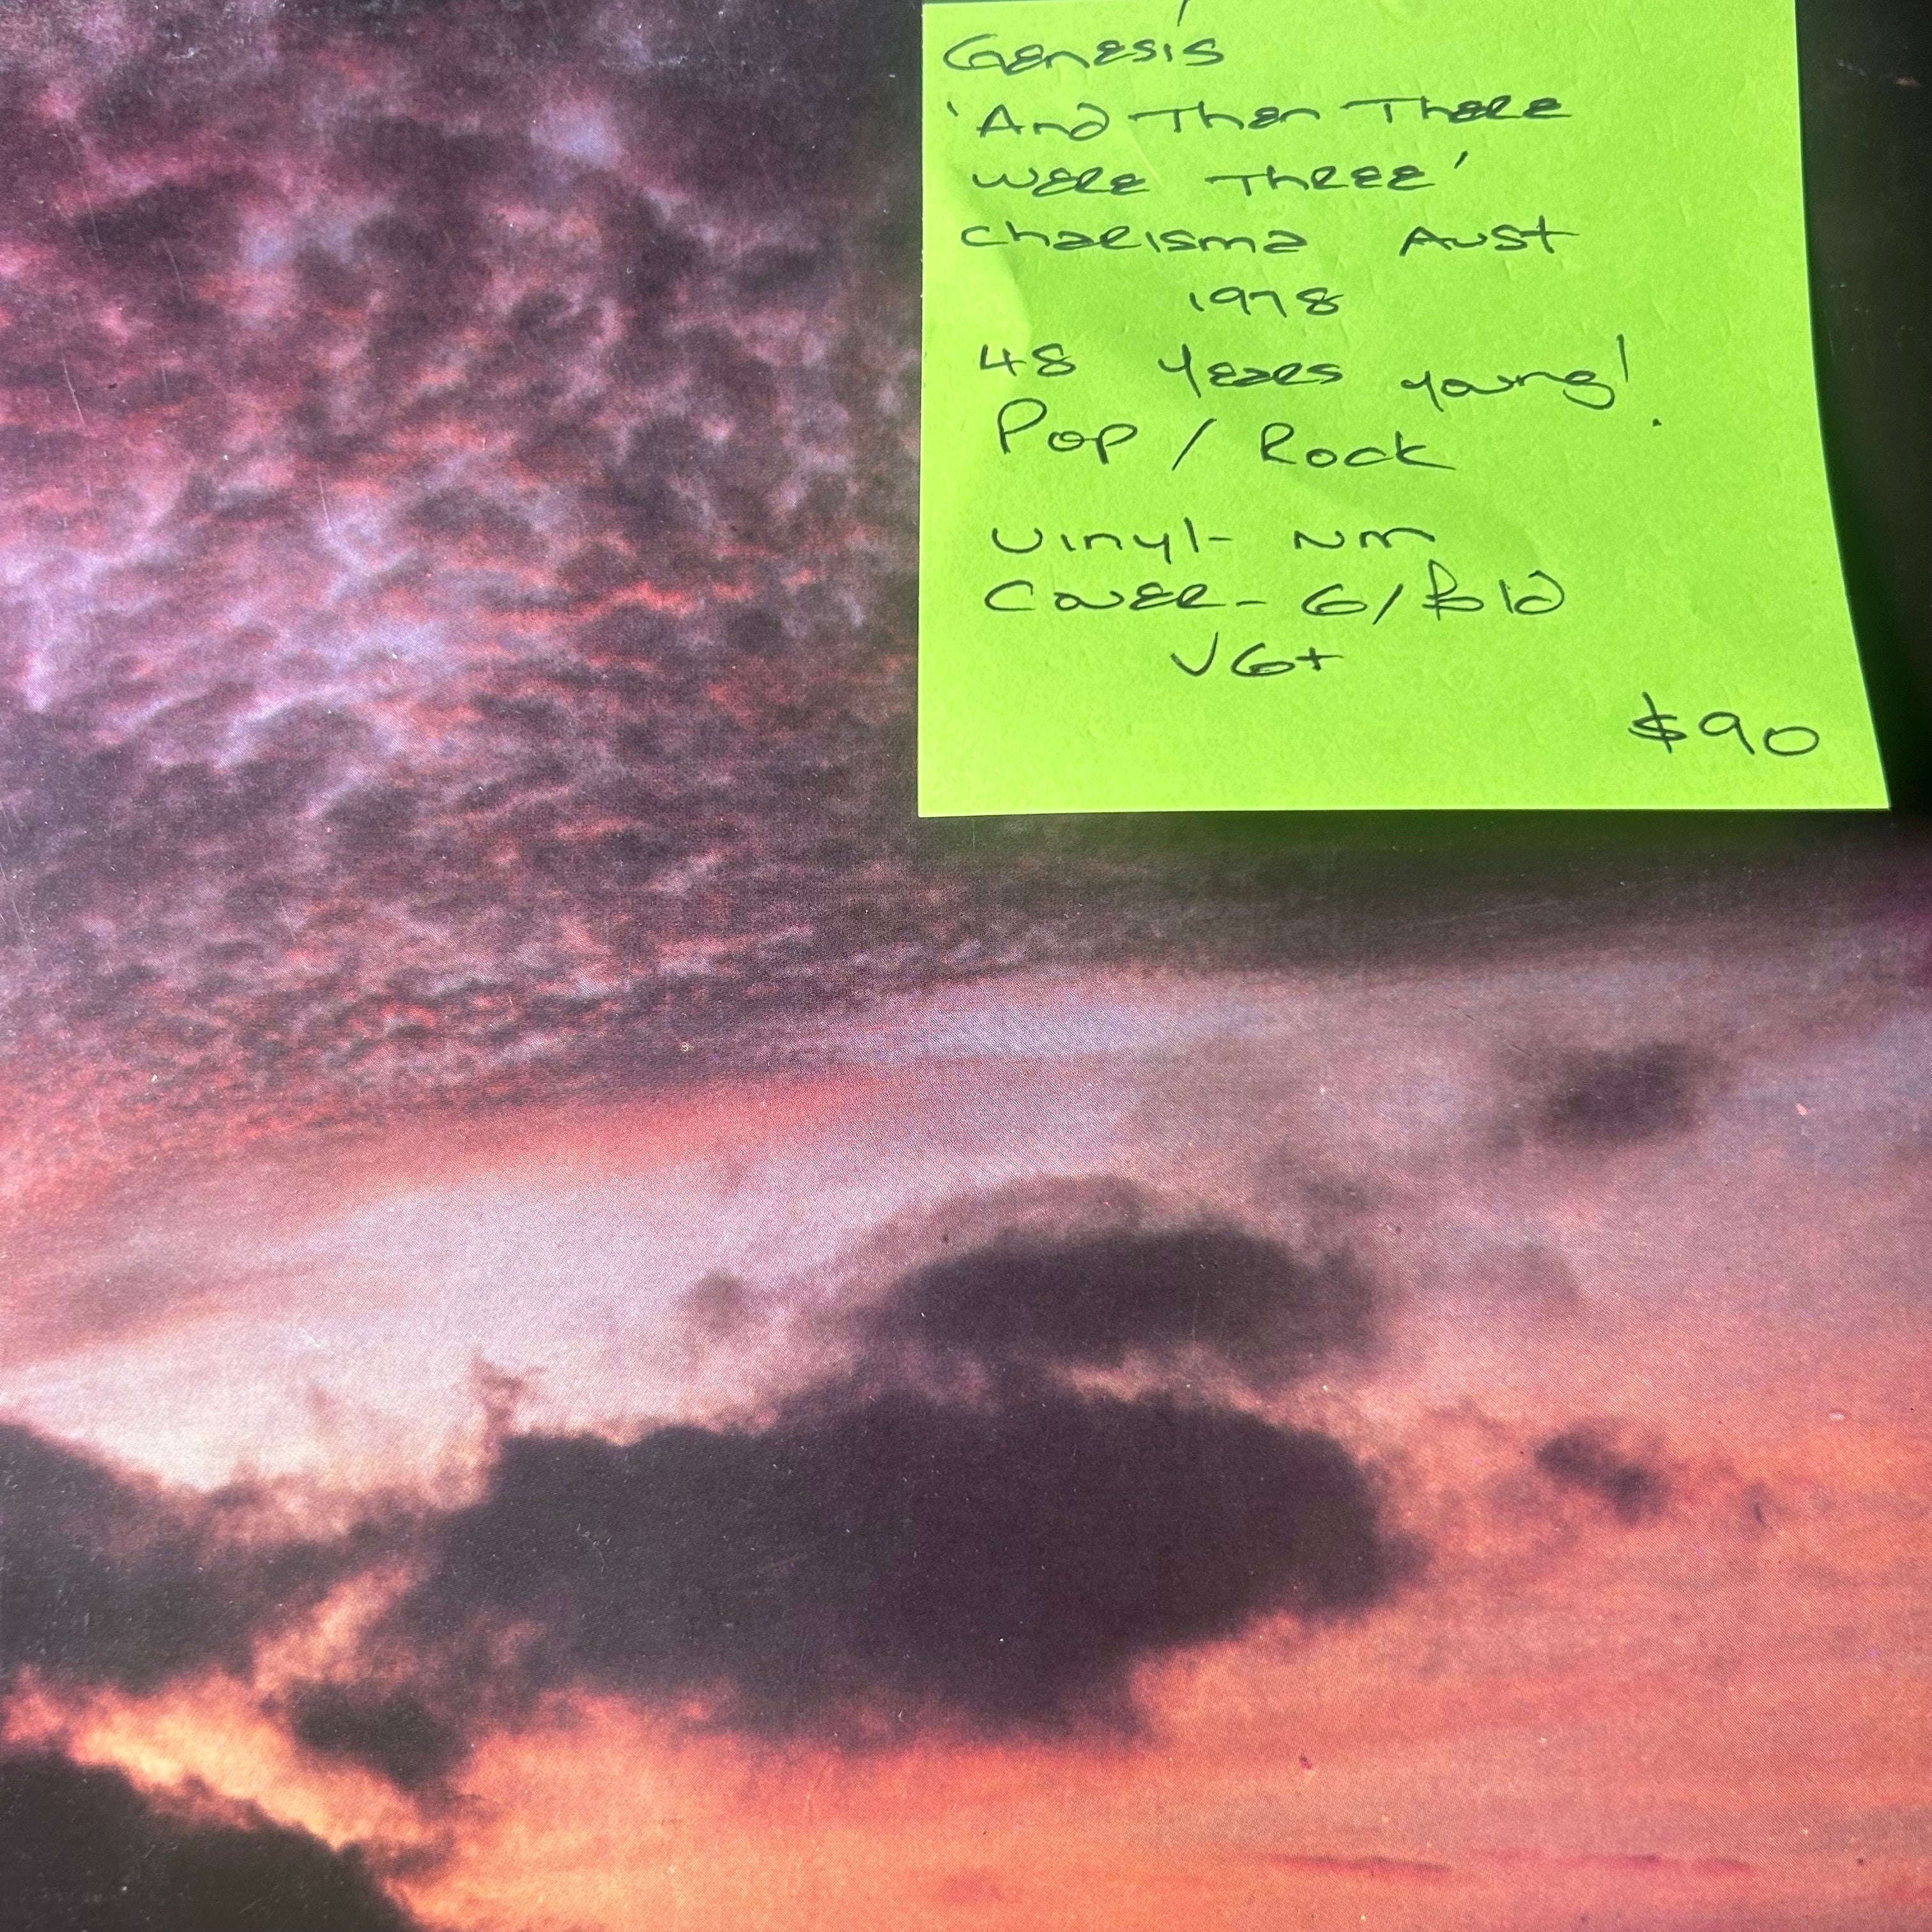 Genesis
'And Then There
Were Three'
Charisma Aust
1978
48 Years young!
Pop / Rock
Vinyl - NM
Cover - G/Fold
VG+
$90